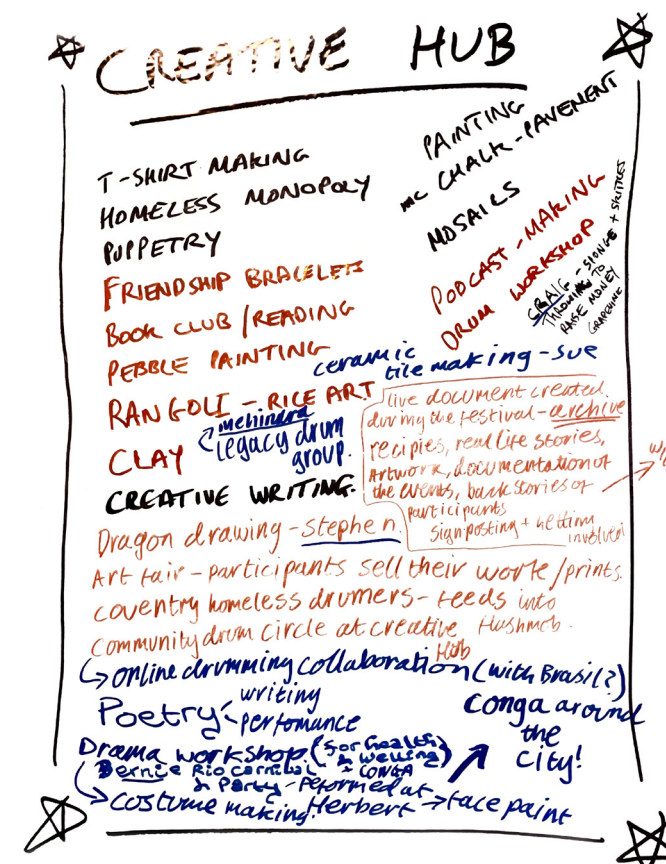 CREATIVE HUB
T-SHIRT MAKING
HOMELESS MONOPOLY
PUPPETRY
FRIENDSHIP BRACELETS
BOOK CLUB / READING
PEBBLE PAINTING
RANGOLI - RICE ART
CLAY
CREATIVE WRITING.
PAINTING
CHALK - PAVEMENT
MOSAICS
PODCAST - MAKING
DRUM WORKSHOP
CRAIG - SPONGE + SKITTLES
THROWING TO
RAISE MONEY
GRAPEVINE
ceramic
tile making - sue
mehindra
legacy drum
group.
live document created
during the festival - archive
recipies, real life stories,
Artwork, documentation of
the events, back stories of
participants
signposting + getting
involved
Dragon drawing - Stephen.
Art fair - participants sell their work/prints.
coventry homeless drumers - feeds into
community drum circle at creative flashmob.
Hub
online drumming collaboration (with Brasil?)
Poetry
writing
perfomance
conga around
the
city!
Drama workshop. (for health
& wellbing)
Bernie Rio carnival
& Party - CONGA
- Reformed at
Herbert
costume making!
→ face paint